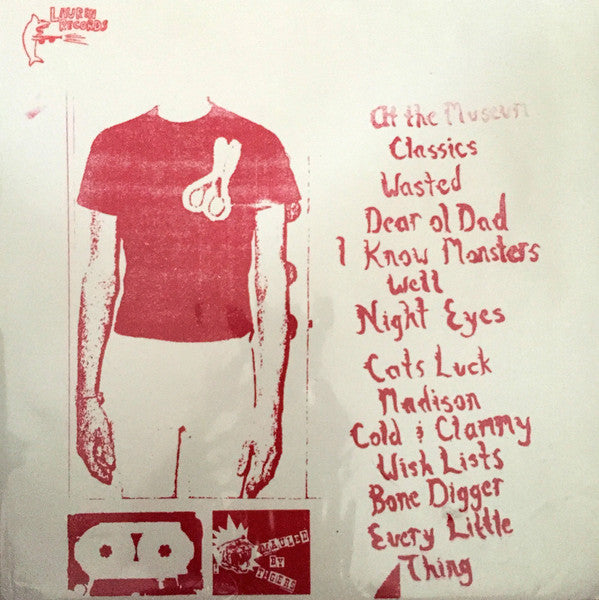 LAUREN
RECORDS
At the Museum
Classics
Wasted
Dear ol Dad
I Know Monsters
Well
Night Eyes
Cats Luck
Madison
Cold & Clammy
Wish Lists
Bone Digger
Every Little
Thing
CRADLED
BY
TIGERS